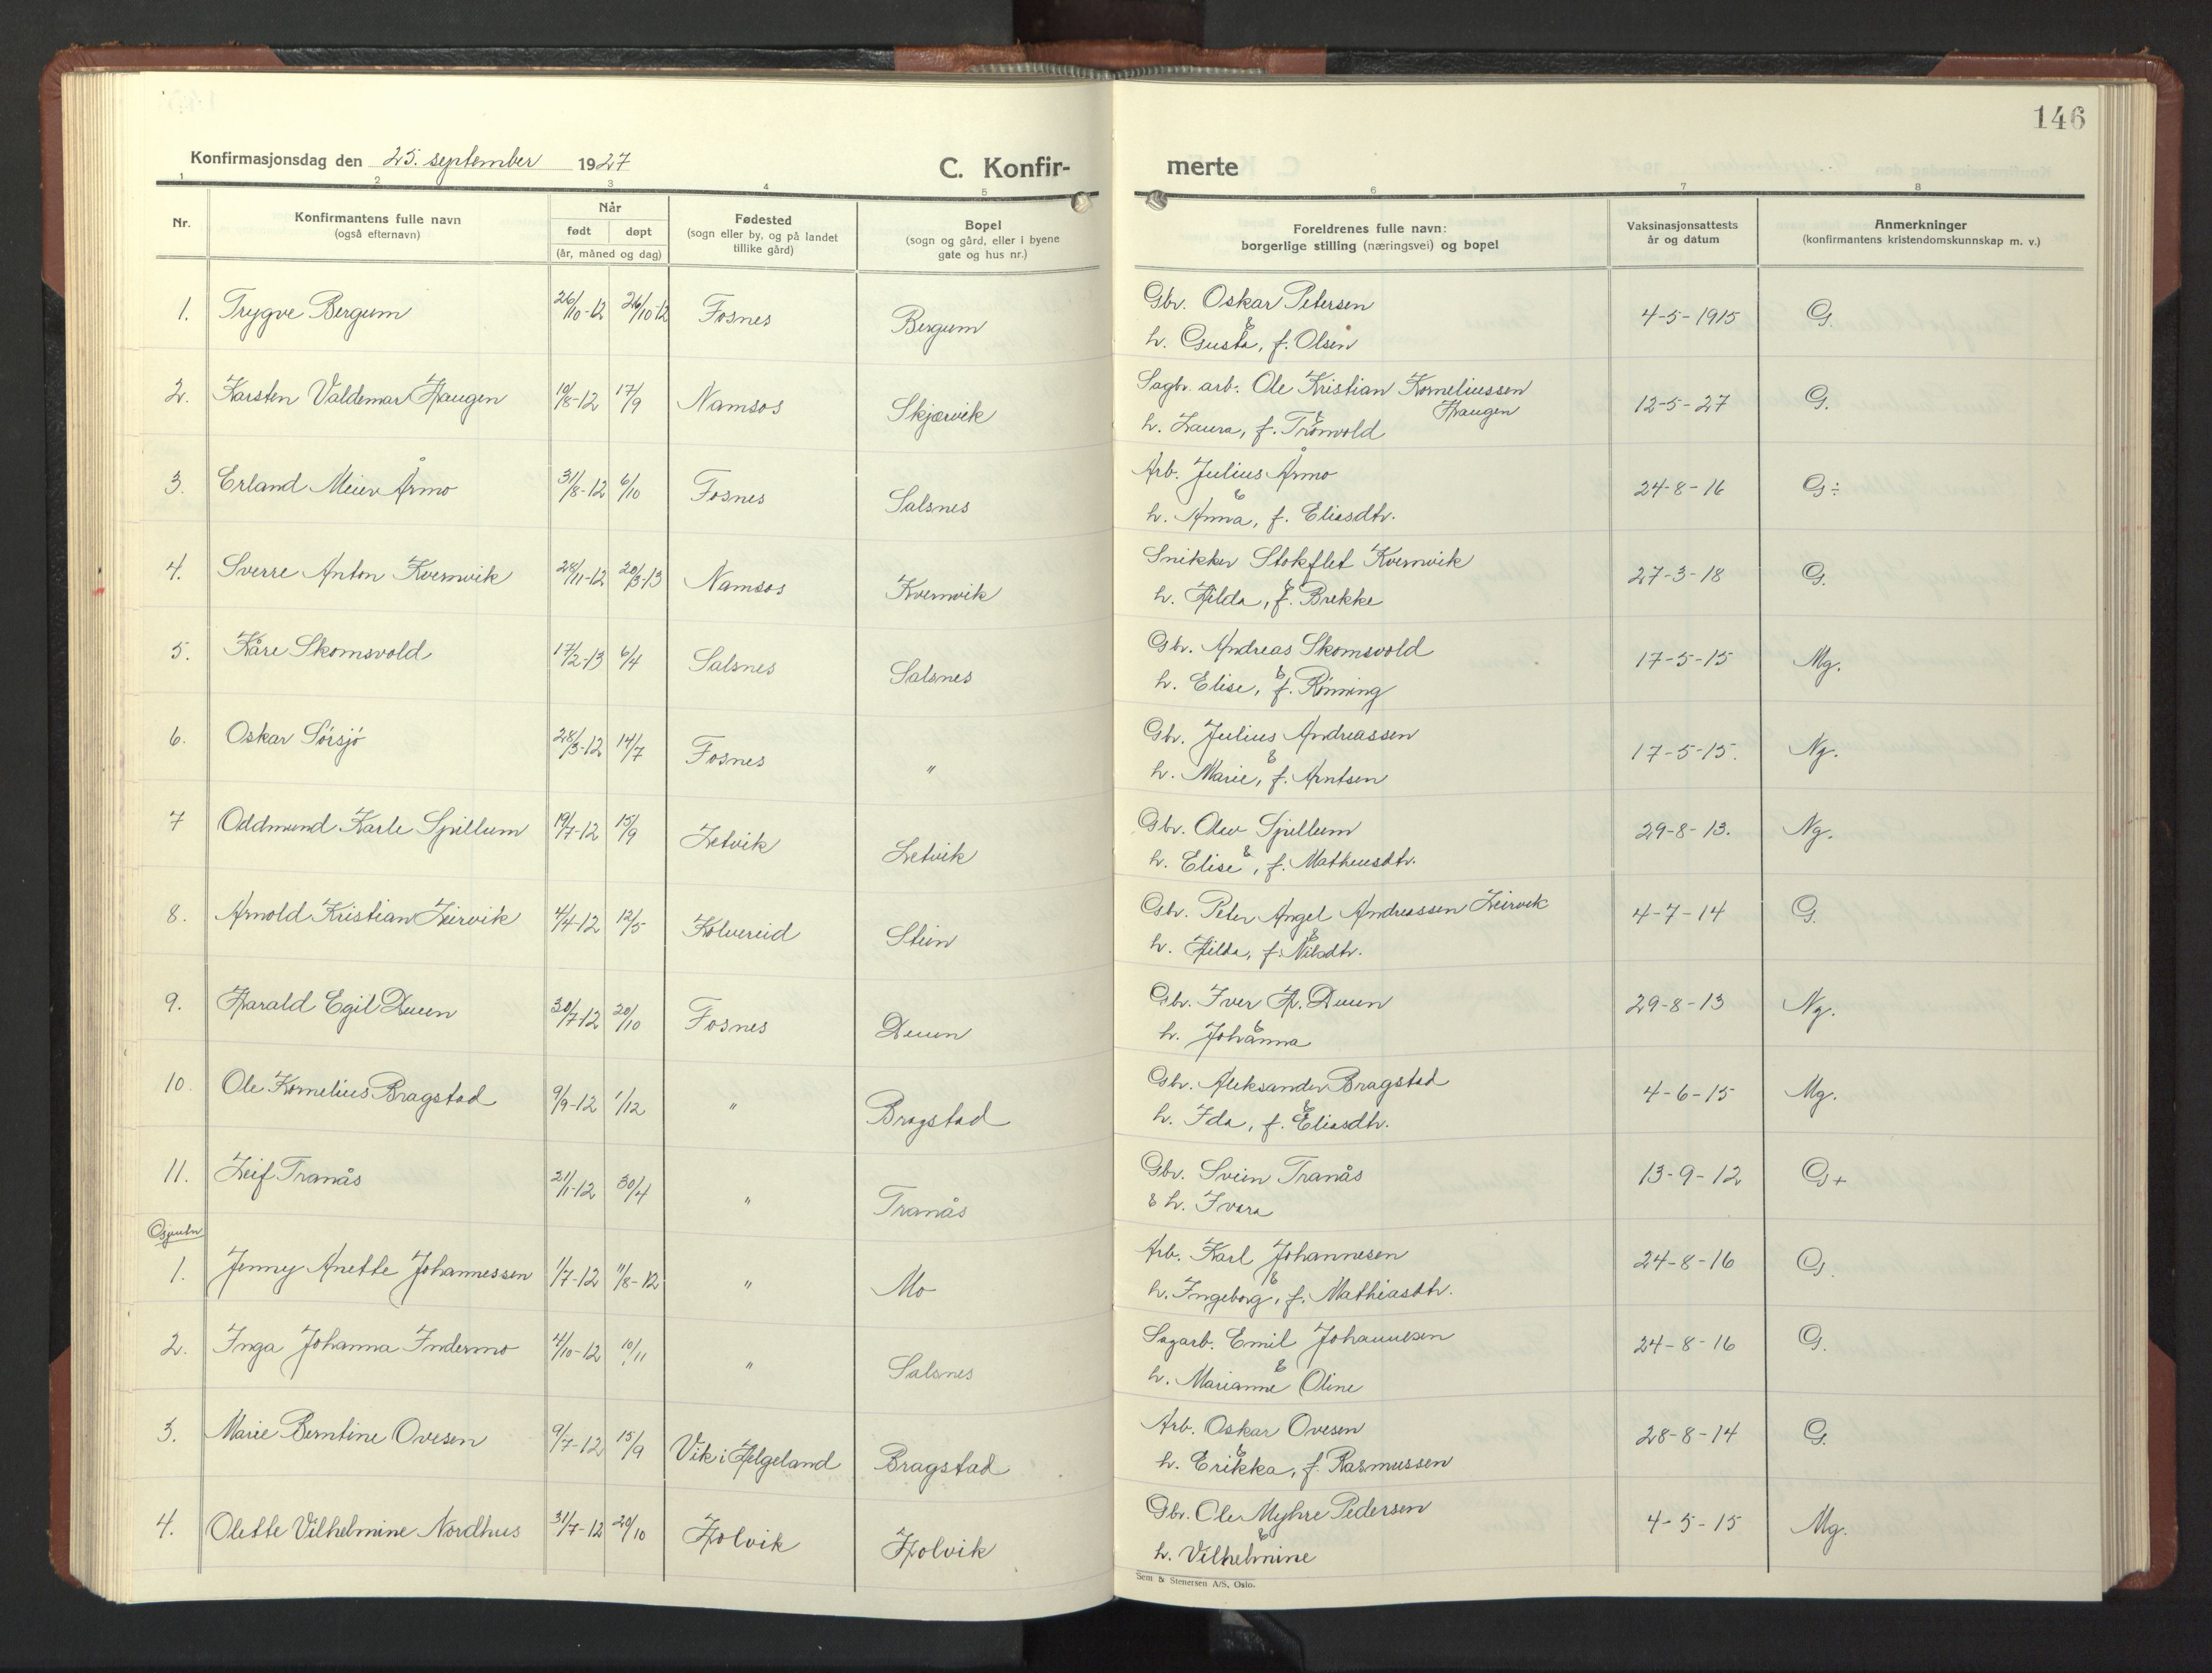 146
Konfirmasjonsdag den 25. september 1927
C. Konfir-
merte
1 2 3 4 5 6 7 8
Nr.
Konfirmantens fulle navn
(også efternavn)
Når
født døpt
(år, måned og dag)
Fødested
(sogn eller by, og på landet
tillike gård)
Bopel
(sogn og gård, eller i byene
gate og hus nr.)
Foreldrenes fulle navn:
borgerlige stilling (næringsvei) og bopel
Vaksinasjonsattests
år og datum
Anmerkninger
(konfirmantens kristendomskunnskap m. v.)
1. Trygve Bergum 26/10-12 26/10-12 Fosnes Bergum Gbr. Oskar Petersen 4-5-1915 G.
& h. Gusta, f. Olsen
2. Karsten Valdemar Haugen 19/8-12 17/9 Namsos Skjærvik Sagbr. arb. Ole Kristian Korneliussen 12-5-27 G.
Haugen
& h. Laura, f. Trønvold
3. Erland Meier Årmo 31/8-12 6/10 Fosnes Salsnes Arb. Julius Årmo 24-8-16 G÷
& h. Anna, f. Eliasdtr.
4. Sverre Anton Kvernvik 28/11-12 20/3-13 Namsos Kvernvik Snikker Stokflet Kvernvik 27-3-18 G.
& h. Hilda, f. Brekke
5. Kåre Skomsvold 17/2-13 6/4 Salsnes Salsnes Gbr. Andreas Skomsvold 17-5-15 Mg.
& h. Elise, f. Rønning
6. Oskar Sørsjø 28/3-12 14/7 Fosnes " Gbr. Julius Andreassen 17-5-15. Ng.
& h. Marie, f. Arntsen
7 Oddmund Karle Spillum 19/7-12 15/9 Letvik Letvik Gbr. Olav Spillum 29-8-13. Ng.
& h. Elise, f. Matheusdtr.
8. Arnold Kristian Leirvik 4/4-12 12/5 Kolvereid Stein Gbr. Peter Angel Andreassen Leirvik 4-7-14 G.
& h. Hilda, f. Nilsdtr.
9. Harald Egil Duun 30/7-12 20/10 Fosnes Duun Gbr. Iver H. Duun 29-8-13 Ng.
& h. Johanna
10. Ole Kornelius Bragstad 9/9-12 1/12 " Bragstad Gbr. Aleksander Bragstad 4-6-15 Mg.
& h. Ida, f. Eliasdtr.
11. Leif Tranås 21/1-12 30/4 " Tranås Gbr. Svein Tranås 13-9-12 G+
& h. Ivara
1. Jenny Anette Johannessen 1/7-12 11/8-12 " Mo Arb. Karl Johannesen 24-8-16 G.
& h. Ingeborg, f. Mathiasdtr.
2. Inga Johanna Indermo 4/10-12 10/11 " Salsnes Sagarb. Emil Johannesen 24-8-16 G.
& h. Marianne Oline
3. Marie Berntine Ovesen 9/7-12 15/9 Vik i Helgeland Bragstad Arb. Oskar Ovesen 28-8-14 G.
& h. Erikka, f. Rasmussen
4. Olette Vilhelmine Nordhus 31/7-12 20/10 Holvik Holvik Gbr. Ole Myhre Pedersen 4-5-15 Mg.
& h. Vilhelmine
Sem & Stenersen A/S, Oslo.